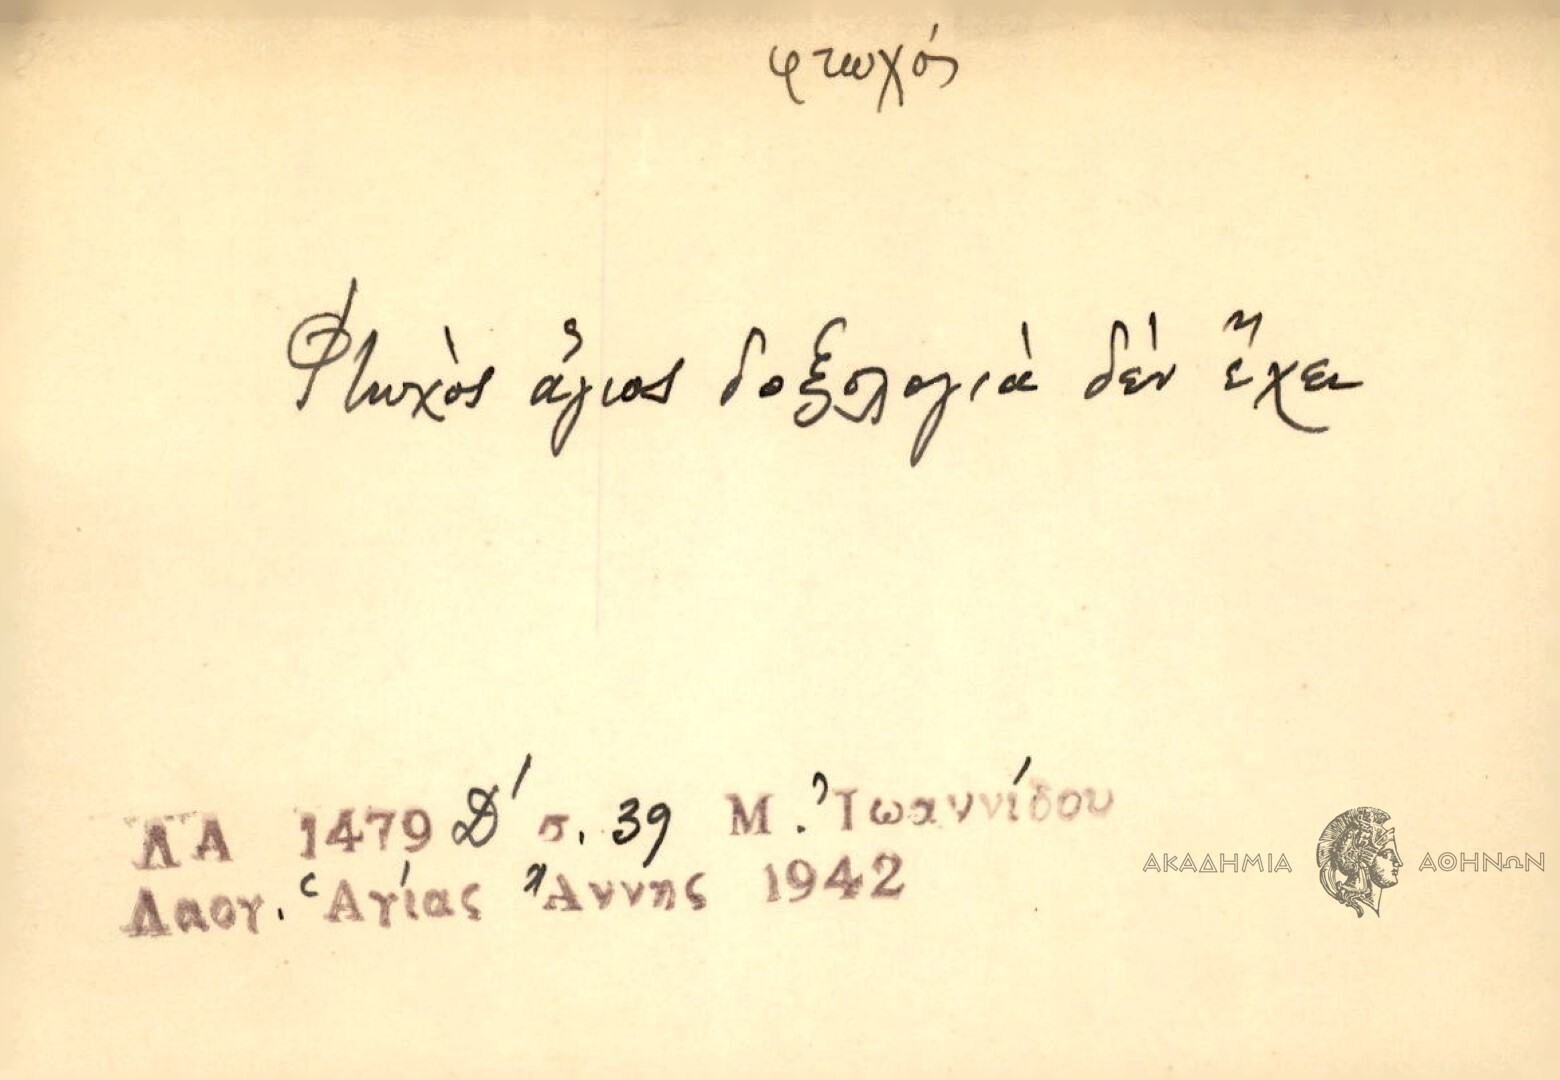 φτωχός
Φτωχὸς ἅγιος δοξολογιὰ δὲν ἔχει
ΛΑ 1479 Δ' σ. 39 Μ. Ἰωαννίδου
Λαογ. Ἁγίας Ἄννης 1942
ΑΚΑΔΗΜΙΑ ΑΘΗΝΩΝ